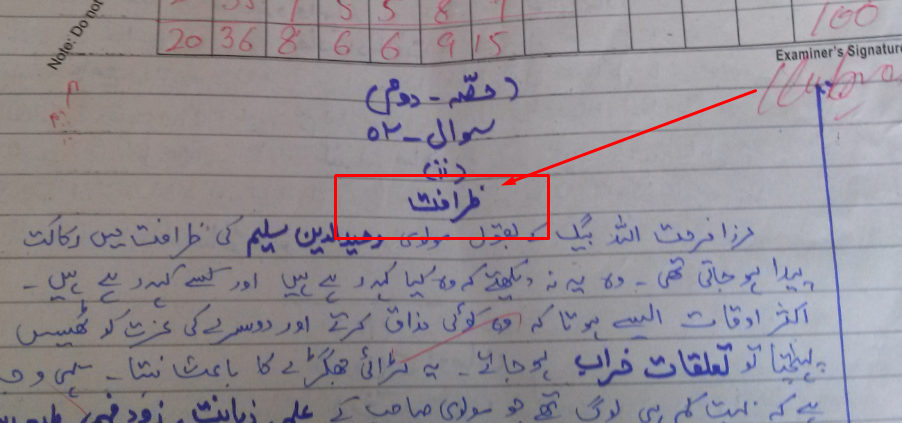 Note: Do not
20 36 8 6 6 9 15
100
Examiner's Signature
(حصّہ - دوم)
سوال - ۰۲
(ii)
ظرافت
مرزا فرحت اللہ بیگ کے بقول مولوی وحیدالدین سلیم کی ظرافت میں رکاکت
پیدا ہو جاتی تھی - وہ یہ نہ دیکھتے کہ وہ کیا کہہ رہے ہیں اور کسے کہہ رہے ہیں -
اکثر اوقات ایسے ہوتا کہ وہ کوئی مذاق کرتے اور دوسرے کی عزت کو ٹھیس
پہنچتا تو تعلقات خراب ہو جاتے - یہ لڑائی جھگڑے کا باعث بنتا - یہی وجہ
ہے کہ بہت کم ہی لوگ تھے جو مولوی صاحب کے علمی ذہانت، زود فہمی